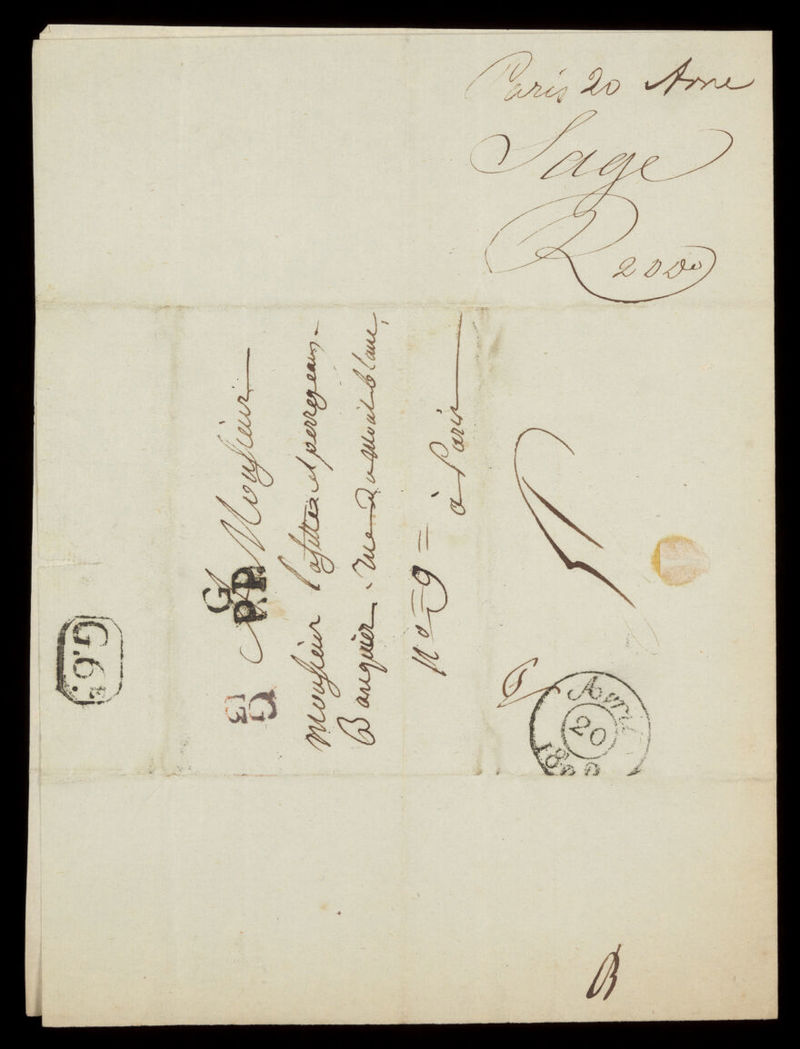 Paris 20 Avre
Sage
R 2000
A Monsieur
Monsieur lafitte et perregeaux
Banquier Rue du Montblanc,
n° = 9 =
à Paris
G
P.P.
G
13
G.6.e
Avril
20
B